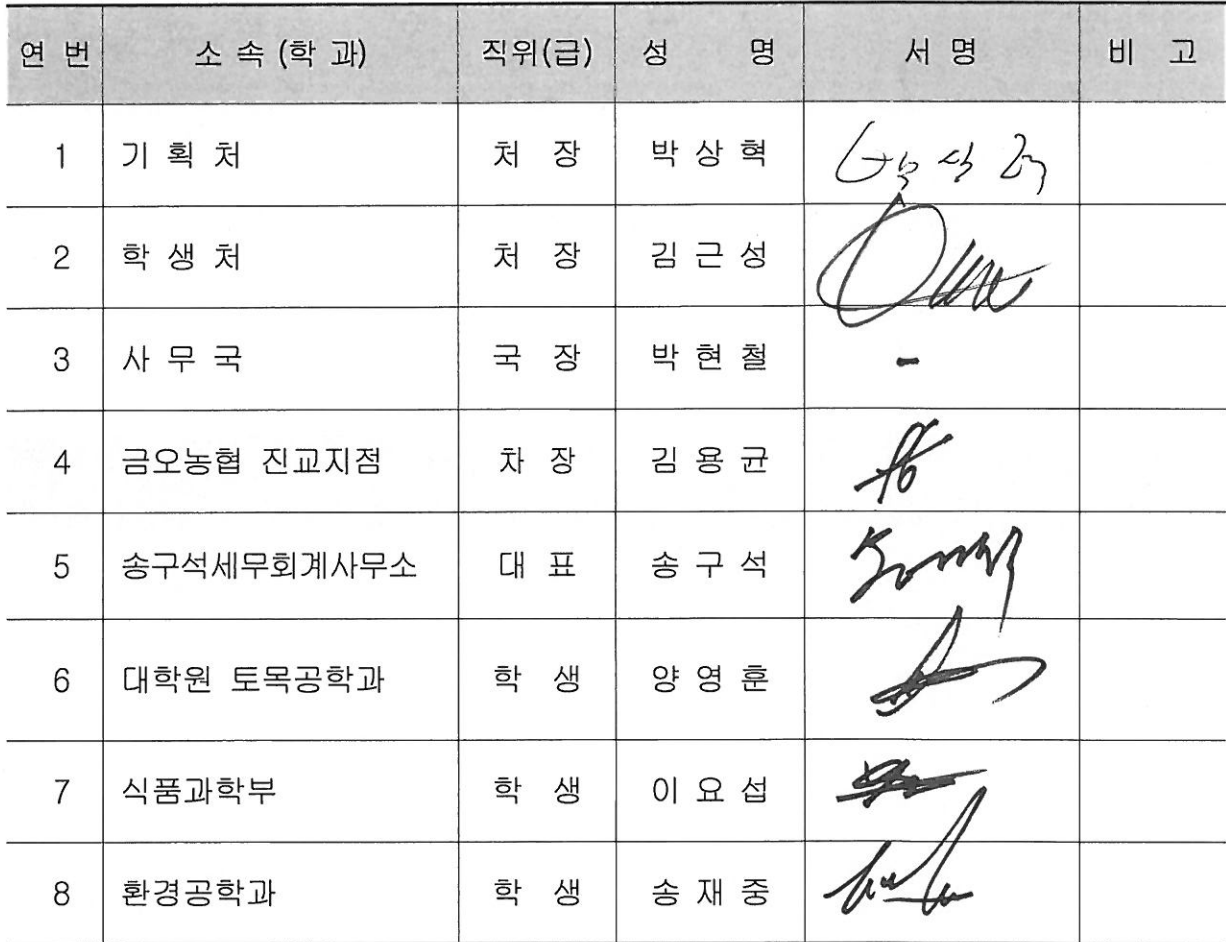 연 번 소 속 (학 과) 직위(급) 성 명 서 명 비 고
1 기 획 처 처 장 박 상 혁
2 학 생 처 처 장 김 근 성
3 사 무 국 국 장 박 현 철 -
4 금오농협 진교지점 차 장 김 용 균
5 송구석세무회계사무소 대 표 송 구 석
6 대학원 토목공학과 학 생 양 영 훈
7 식품과학부 학 생 이 요 섭
8 환경공학과 학 생 송 재 중